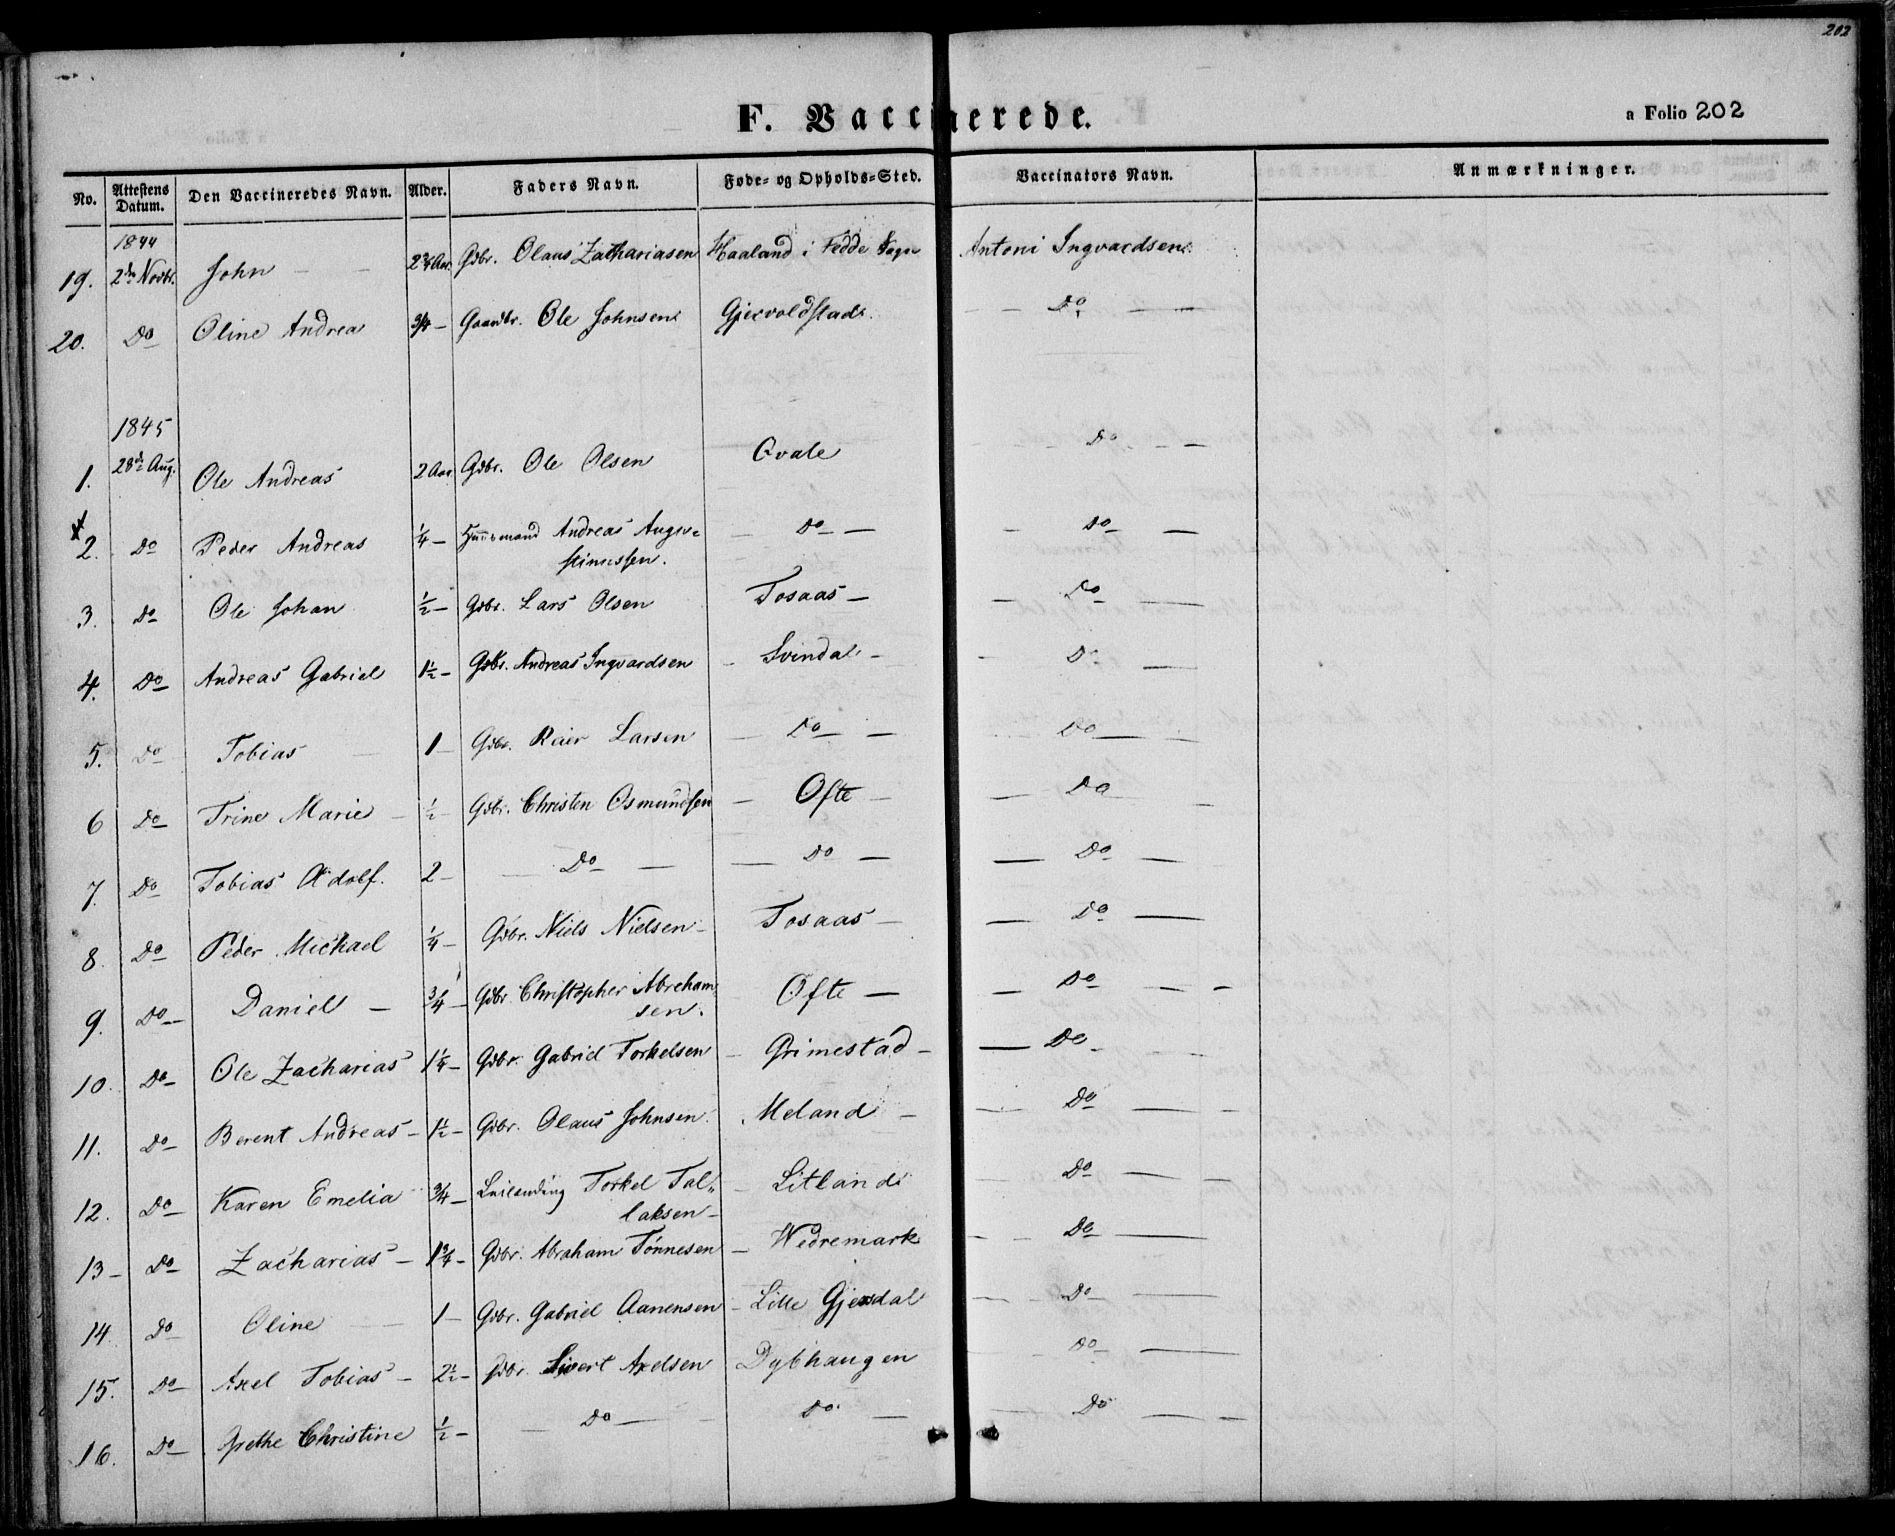 202
F. Vaccinerede.
a Folio 202
No. Attestens Datum. Den Vaccineredes Navn. Alder. Faders Navn. Føde- og Opholds-Sted. Vaccinators Navn. Anmærkninger.
1844
19. 2den Novbr. John — — 2¾ Aar Gdbr. Olaus Zachariasen Haaland i Fedde Sogn Antoni Ingvardsen
20. Do Oline Andrea ¾ — Gaardbr. Ole Johnsen Gjervoldstad. — Do —
1845
1. 28de Aug. Ole Andreas 2 Aar Gdbr. Ole Olsen Qvale — Do —
2. Do Peder Andreas ¼ — Huusmand Andreas Augu-
stinussen. — Do — — Do —
3. Do Ole Johan ½ — Gdbr. Lars Olsen Tosaas — — Do —
4. Do Andreas Gabriel 1½ — Gdbr. Andreas Ingvardsen — Svindal — — Do —
5. Do Tobias 1 — Gdbr. Reier Larsen — Do — — Do —
6 Do Trine Marie — ½ Gdbr. Christen Osmundsen — Ofte — — Do —
7. Do Tobias Adolf. 2 — — Do — — Do — — Do —
8. Do Peder Michael ¼ — Gdbr. Niels Nielsen — Tosaas — — Do —
9. Do — Daniel — ¾ — Gdbr Christopher Abraham
sen. Ofte — — Do — —
10. Do Ole Zacharias 1¼ — Gdbr. Gabriel Torkelsen — Grimestad — — Do —
11. Do Berent Andreas — 1½ — Gdbr. Olaus Johnsen. Meland — — Do —
12. Do Karen Emelia ¾ — Leilending Torkel Tal-
laksen — — Litland — Do —
13 — Do Zacharias — 1¾ — Gdbr. Abraham Tönnesen — Wedremark — Do —
14. Do Oline — 1 — Gdbr. Gabriel Aanensen — Lille Gjesdal — Do —
15. Do Axel Tobias — 2½ — Gdbr. Sivert Axelsen Dybhaugen — Do —
16. Do Grethe Christine ½ — — Do — — Do — — Do —